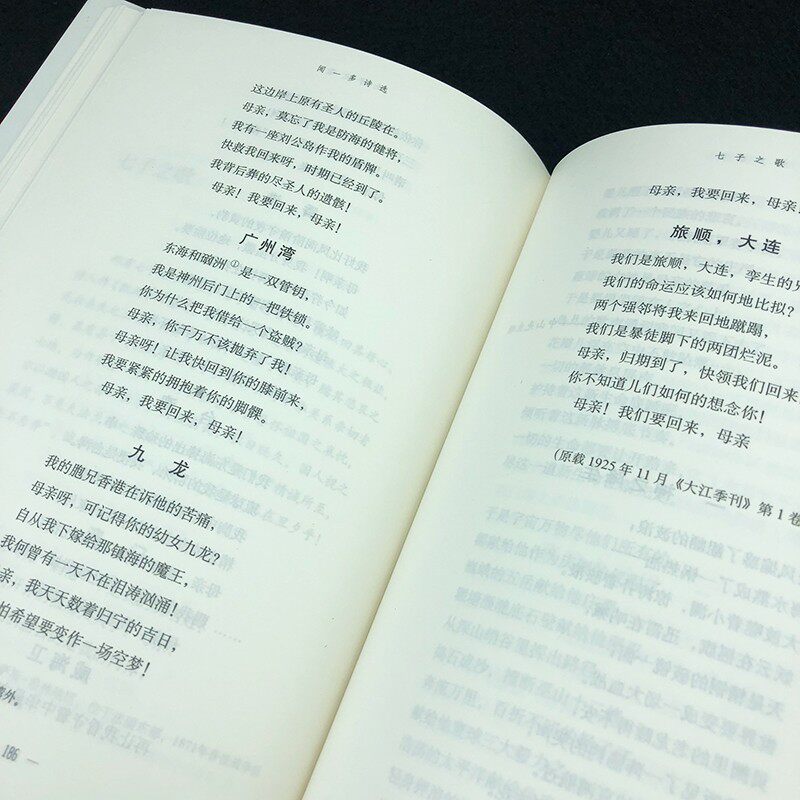 闻一多诗选
这边岸上原有圣人的丘陵在。
母亲，莫忘了我是防海的健将，
我有一座刘公岛作我的盾牌。
快救我回来呀，时期已经到了。
我背后葬的尽圣人的遗骸！
母亲！我要回来，母亲！
广州湾
东海和硇洲①是一双管钥，
我是神州后门上的一把铁锁。
你为什么把我借给一个盗贼？
母亲，你千万不该抛弃了我！
母亲呀！让我快回到你的膝前来，
我要紧紧的拥抱着你的脚髁。
母亲，我要回来，母亲！
九龙
我的胞兄香港在诉他的苦痛，
母亲呀，可记得你的幼女九龙？
自从我下嫁给那镇海的魔王，
我何曾有一天不在泪涛汹涌！
亲，我天天数着归宁的吉日，
怕希望要变作一场空梦！
186
七子之歌
母亲，我要回来，母亲
旅顺，大连
我们是旅顺，大连，孪生的兄
我们的命运应该如何地比拟？
两个强邻将我来回地蹴蹋，
我们是暴徒脚下的两团烂泥。
母亲，归期到了，快领我们回来
你不知道儿们如何的想念你！
母亲！我们要回来，母亲
（原载1925年11月《大江季刊》第1卷